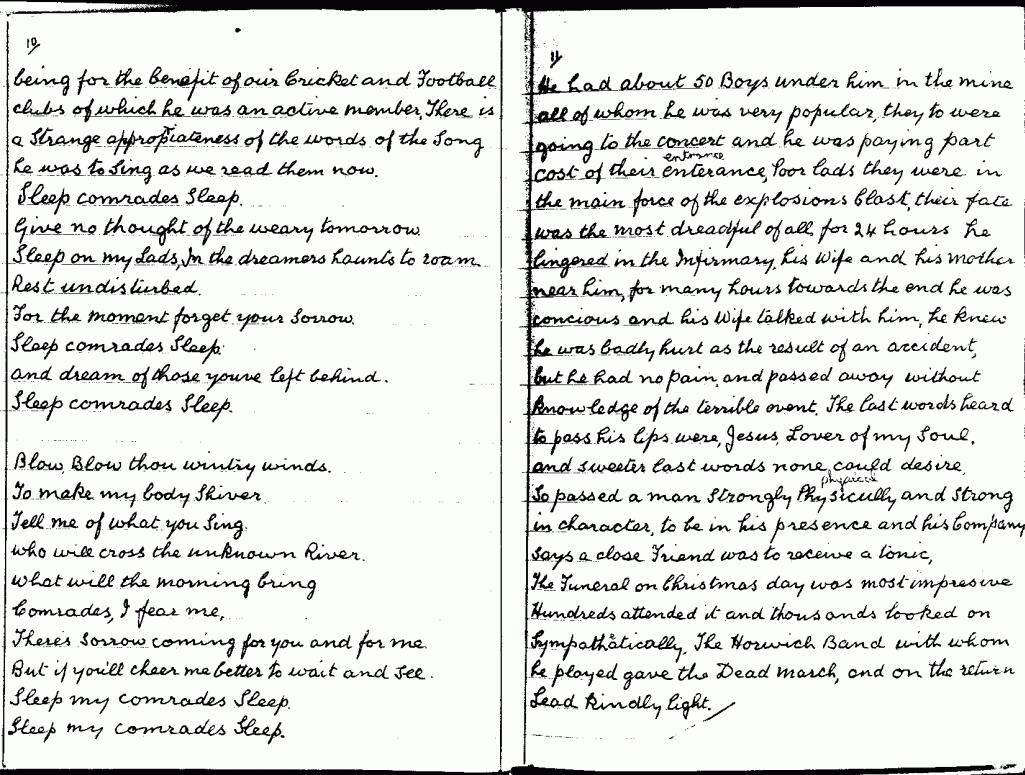 10/
being for the benefit of our Cricket and Football
clubs of which he was an active member, There is
a Strange appropiateness of the words of the Song
he was to Sing as we read them now.
Sleep comrades Sleep.
Give no thought of the weary tomorrow
Sleep on my Lads, In the dreamers haunts to roam
Rest undisturbed.
For the moment forget your Sorrow.
Sleep comrades Sleep.
and dream of those youve left behind.
Sleep comrades Sleep.
Blow, Blow thou wintry winds.
To make my body Shiver
Tell me of what you Sing.
who will cross the unknown River.
what will the morning bring
Comrades, I fear me,
There's Sorrow coming for you and for me.
But if you'll cheer me better to wait and see.
Sleep my comrades Sleep.
Sleep my comrades Sleep.
11/
He had about 50 Boys under him in the mine
all of whom he was very popular, they to were
going to the concert and he was paying part
entrance
cost of their enterance, Poor lads they were in
the main force of the explosions blast, their fate
was the most dreadful of all, for 24 hours he
lingered in the Infirmary, his Wife and his mother
near him, for many hours towards the end he was
concious and his Wife talked with him, he knew
he was badly hurt as the result of an accident,
but he had no pain, and passed away without
knowledge of the terrible event. The last words heard
to pass his lips were, Jesus, Lover of my Soul,
and sweeter last words none could desire,
physical
So passed a man Strongly Physicully and Strong
in character, to be in his presence and his Company
says a close Friend was to receive a tonic,
The Funeral on Christmas day was most impresive
Hundreds attended it and thousands looked on
Sympathatically, The Horwich Band with whom
he played gave the Dead March, and on the return
Lead kindly light.